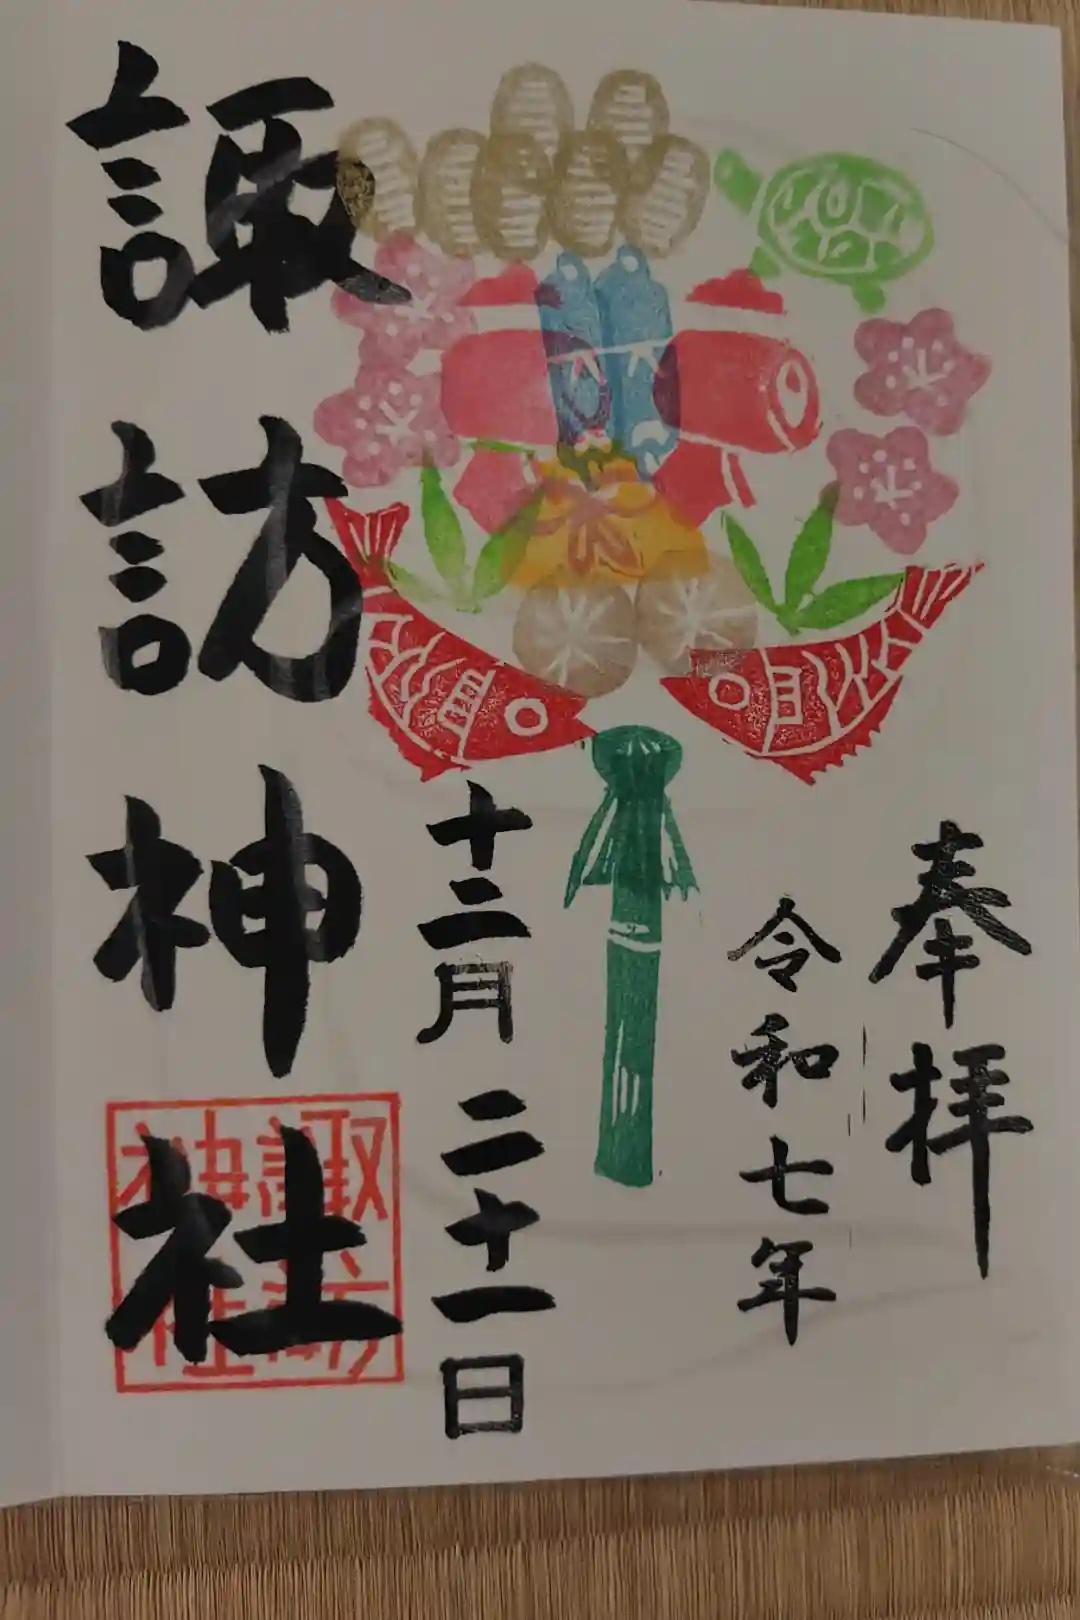 奉拝
令和七年
十二月二十一日
諏訪神社
諏訪
神社